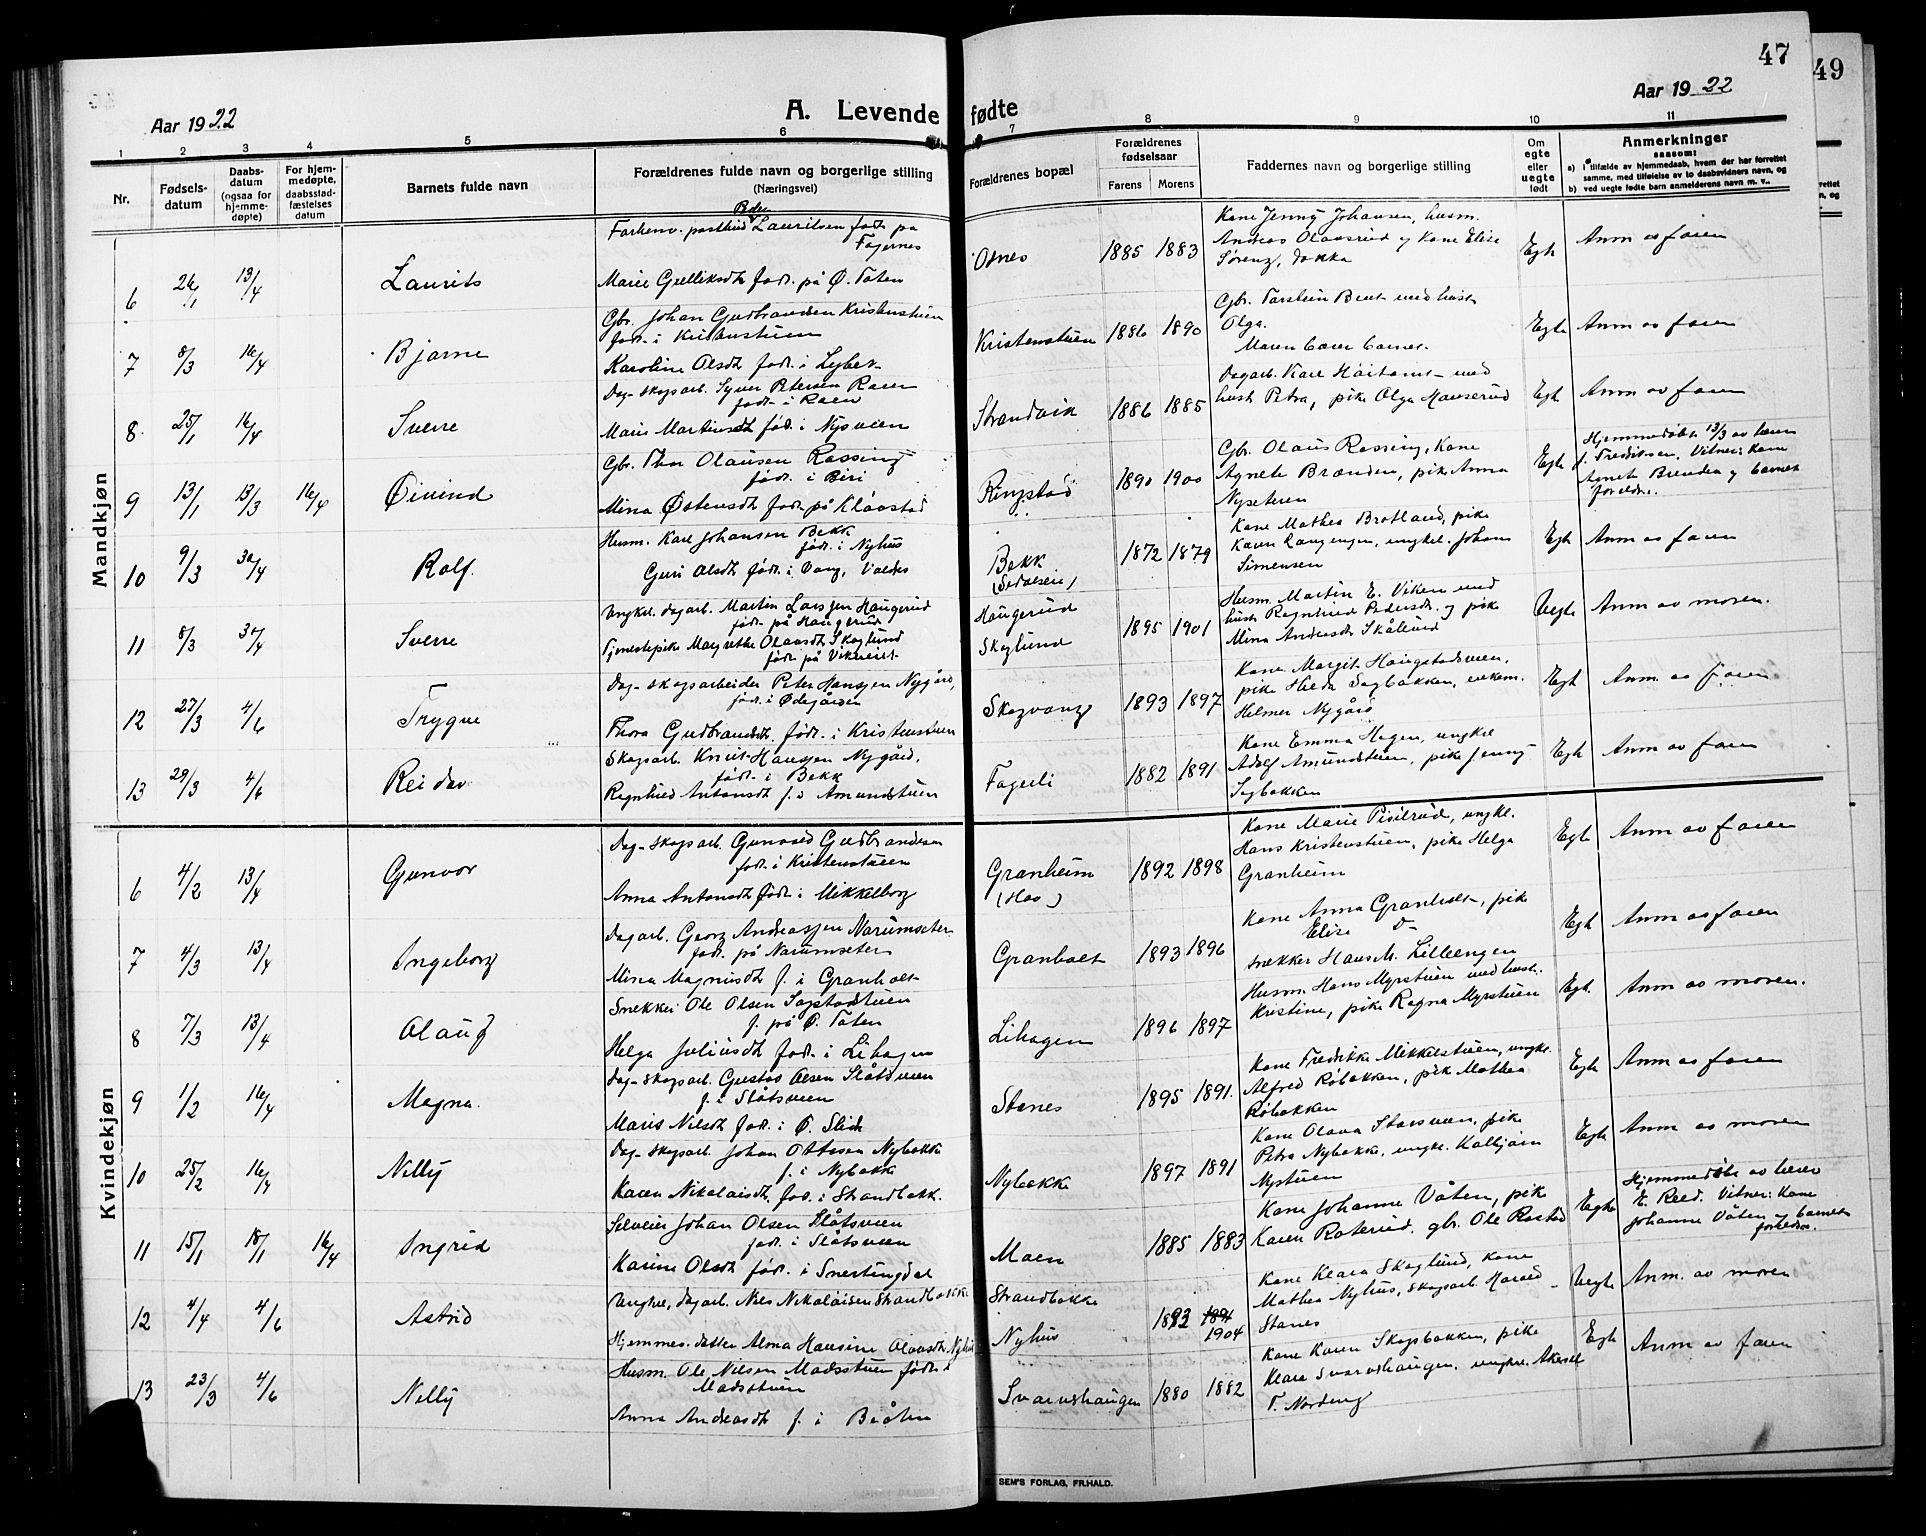 47
49
Aar 1922
A. Levende fødte
Aar 1922
1 2 3 4 5 6 7 8 9 10 11
Nr.
Fødsels-
datum
Daabs-
datum
(ogsaa for
hjemme-
døpte)
For hjem-
medøpte,
daabsstad-
fæstelses
datum
Barnets fulde navn
Forældrenes fulde navn og borgerlige stilling
(Næringsvei)
Forældrenes bopæl
Forældrenes
fødselsaar
Farens Morens
Faddernes navn og borgerlige stilling
Om
egte
eller
uegte
født
Anmerkninger
saasom:
a) i tilfælde av hjemmedaab, hvem der har forrettet
samme, med tilføielse av to daabsvidners navn, og
b) ved uegte fødte barn anmelderens navn m. v..
Mandkjøn
Peder
Lauritsen født på
Fagernes
6 26/1 13/4 Laurits
Marie Gulliksdt. født. på Ø. Toten
Osnes 1885 1883
Kone Jenny Johansen, husm.
Andreas Olaasrud og Kone Elise
Sørenz, Dokka
Egte Anm av faren
7 8/3 16/4 Bjarne
Gbr. Johan Gudbrandsen Kristenstuen
født. i Kristenstuen
Karoline Olsdt. født. i Lybek
Kristenstuen 1886 1890
Gbr. Torstein Bent med hust.
Olga.
Egte Anm av faren
8 25/1 16/4 Sverre
Dag- skogsarb. Syver Petersen Roen
født. i Roen
Marie Martinsdt. fød. i Nysveen
Strandvik 1886 1885
Dagarb. Karl Høitomt med
hust Petra, pike Olga Hauserud
Egte Anm av faren
9 13/1 13/3 16/4 Øivind
Gbr. Thor Olausen Røssing
født. i Biri
Mina Østensdt. født. på Klaastad
Ringstad 1890 1900
Gbr. Olaus Røssing, Kone
Agnete Brænden, pike Anna
Nyseteren
Egte Hjemmedøbt 13/3 av
J. Fredriksen. Vitner: Kone
Agnete Brenden og barnets
foreldre.
10 9/3 30/4 Rolf.
Husm. Karl Johansen Bekk
født. i Nyhus
Guri Olsdt. født. i Vang, Valdres
Bekk 1872 1879
Kone Mathea Brotland, pike
Karen Langengen, ungkl. Johan
Simensen
Egte Anm av faren
11 8/3 30/4 Sverre
Ungkl. dagarb. Martin Larssen Haugerud
født. på Haugerud
Tjenestepike Margrethe Olausdt. Skoglund
født. på Vikneiet
Haugerud
Skoglund 1895 1901
Husm. Martin E. Viken med
hust Ragnhild Pedersdt. og pike
Mina Andersdt. Skålund
Uegte Anm av moren.
12 27/3 4/6 Trygve
Dag- skogsarbeider Peter Hanssen Nygård,
født. i Ødegården
Thora Gudbrandsdt. født. i Kristenstuen
Skogvang 1893 1897
Kone Margit Haugstadsveen,
pike Hilda Sagbakken, enkem.
Helmer Nygård
Egte Anm. av faren
13 29/3 4/6 Reidar
Skogsarb. Knut Hanssen Nygård,
født. i Bekk
Ragnhild Antonsdt. f. i Amundstuen
Fagerli 1882 1891
Kone Emma Hagen, ungkl.
Adolf Amundstuen, pike Jenny
Sagbakken
Egte Anm av faren
Kvindekjøn
6 4/2 13/4 Gunvor
Dag- skogsarb. Gunvald Gudbrandsen
født. i Kristenstuen
Anna Antonsdt. født. i Mikkelborg
Granheim 1892 1898
(Hov)
Kone Marie Pisilrud, ungkl.
Hans Kristenstuen, pike Helga
Granheim
Egte Anm av faren
7 4/3 13/4 Ingeborg
Dagarb. Georg Andreassen Narumseter
født. på Narumseter
Mina Magnusdt. f. i Granholt
Granholt 1893 1896
Kone Anna Granholt, pike
Elise D-
snekker Hans M. Lilleengen
Egte Anm av faren
8 7/3 13/4 Olaug
Snekker Ole Olsen Sogstadstuen
f. på Ø. Toten
Helga Juliusdt. født. i Lihagen
Lihagen 1896 1897
Husm. Hans Myrstuen med hust.
Kristine, pike Ragna Myrstuen
Egte Anm av moren.
9 1/2 16/4 Magna.
Dag- skogsarb. Gustav Olsen Slåtsveen
f. i Slåtsveen
Marie Nilsdt. født. i Ø. Slidr
Stenes 1895 1891.
Kone Fredrikke Mikkelstuen, ungkl.
Alfred Røbakken, pike Mathea
Røbakken
Egte Anm av faren
10 25/2 16/4 Nelly
Dag- skogsarb. Johan Ottesen Nybakke
f. i Nybakk
Karen Nikolaisdt. fød. i Strandbakk.
Nybakke 1897 1891
Kone Olava Storsveen, pike
Petra Nybakke, ungkl. Kolbjørn
Nystuen
Egte Anm av moren
11 15/1 18/1 16/4 Ingrid
Selveier Johan Olsen Slåtsveen
født. i Slåtsveen
Karine Olsdt. født. i Snertingdal
Moen 1885 1883
Kone Johanne Våten, pike
Karen Roterud, gbr. Ole Rostad
Egte Hjemmedøbt av lærer
E. Roed. Vitner: Kone
Johanne Våten og barnets
foreldre.
12 4/4 4/6 Astrid
Ungkl. dagarb. Nils Nikolaisen Strandbakke
Hjemmev. datter Alma Hansine Olausdt. Nyhus
Strandbakke
Nyhus 1892 1891
1904
Kone Klara Skoglund, kone
Mathea Nyhus, skogsarb. Harald
Stenes
Uegte Anm. av moren
13 23/3 4/6 Nelly
Husm. Ole Nilsen Madsstuen født. i
Madsstuen
Anna Andreasdt. f. i Bråten
Svarvshaugen 1880 1882
Kone Karen Skogsbakken, pike
Klara Svarvshaugen, ungkl. Aksel
T. Nordeng
Egte Anm av faren
SEM'S FORLAG, FR.HALD.